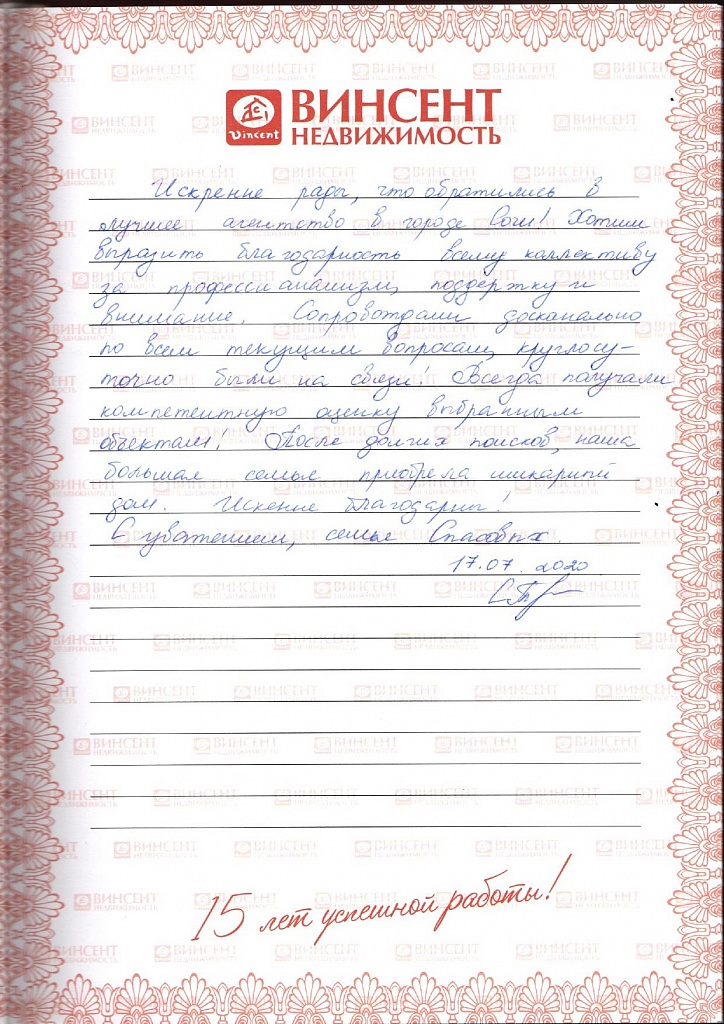 Vincent
ВИНСЕНТ
НЕДВИЖИМОСТЬ
Искренне рады, что обратились в
лучшее агентство в городе Сочи! Хотим
выразить благодарность всему коллективу
за профессианализм, поддержку и
внимание. Сопровождали досканально
по всем текущим вопросам, круглосу-
точно были на связи! Всегда получали
компетентную оценку выбранным
объектам! После долгих поисков, наша
большая семья приобрела шикарный
дом. Искенне благодарны!
С уважением, семья Спасовых.
17.07.2020
15 лет успешной работы!